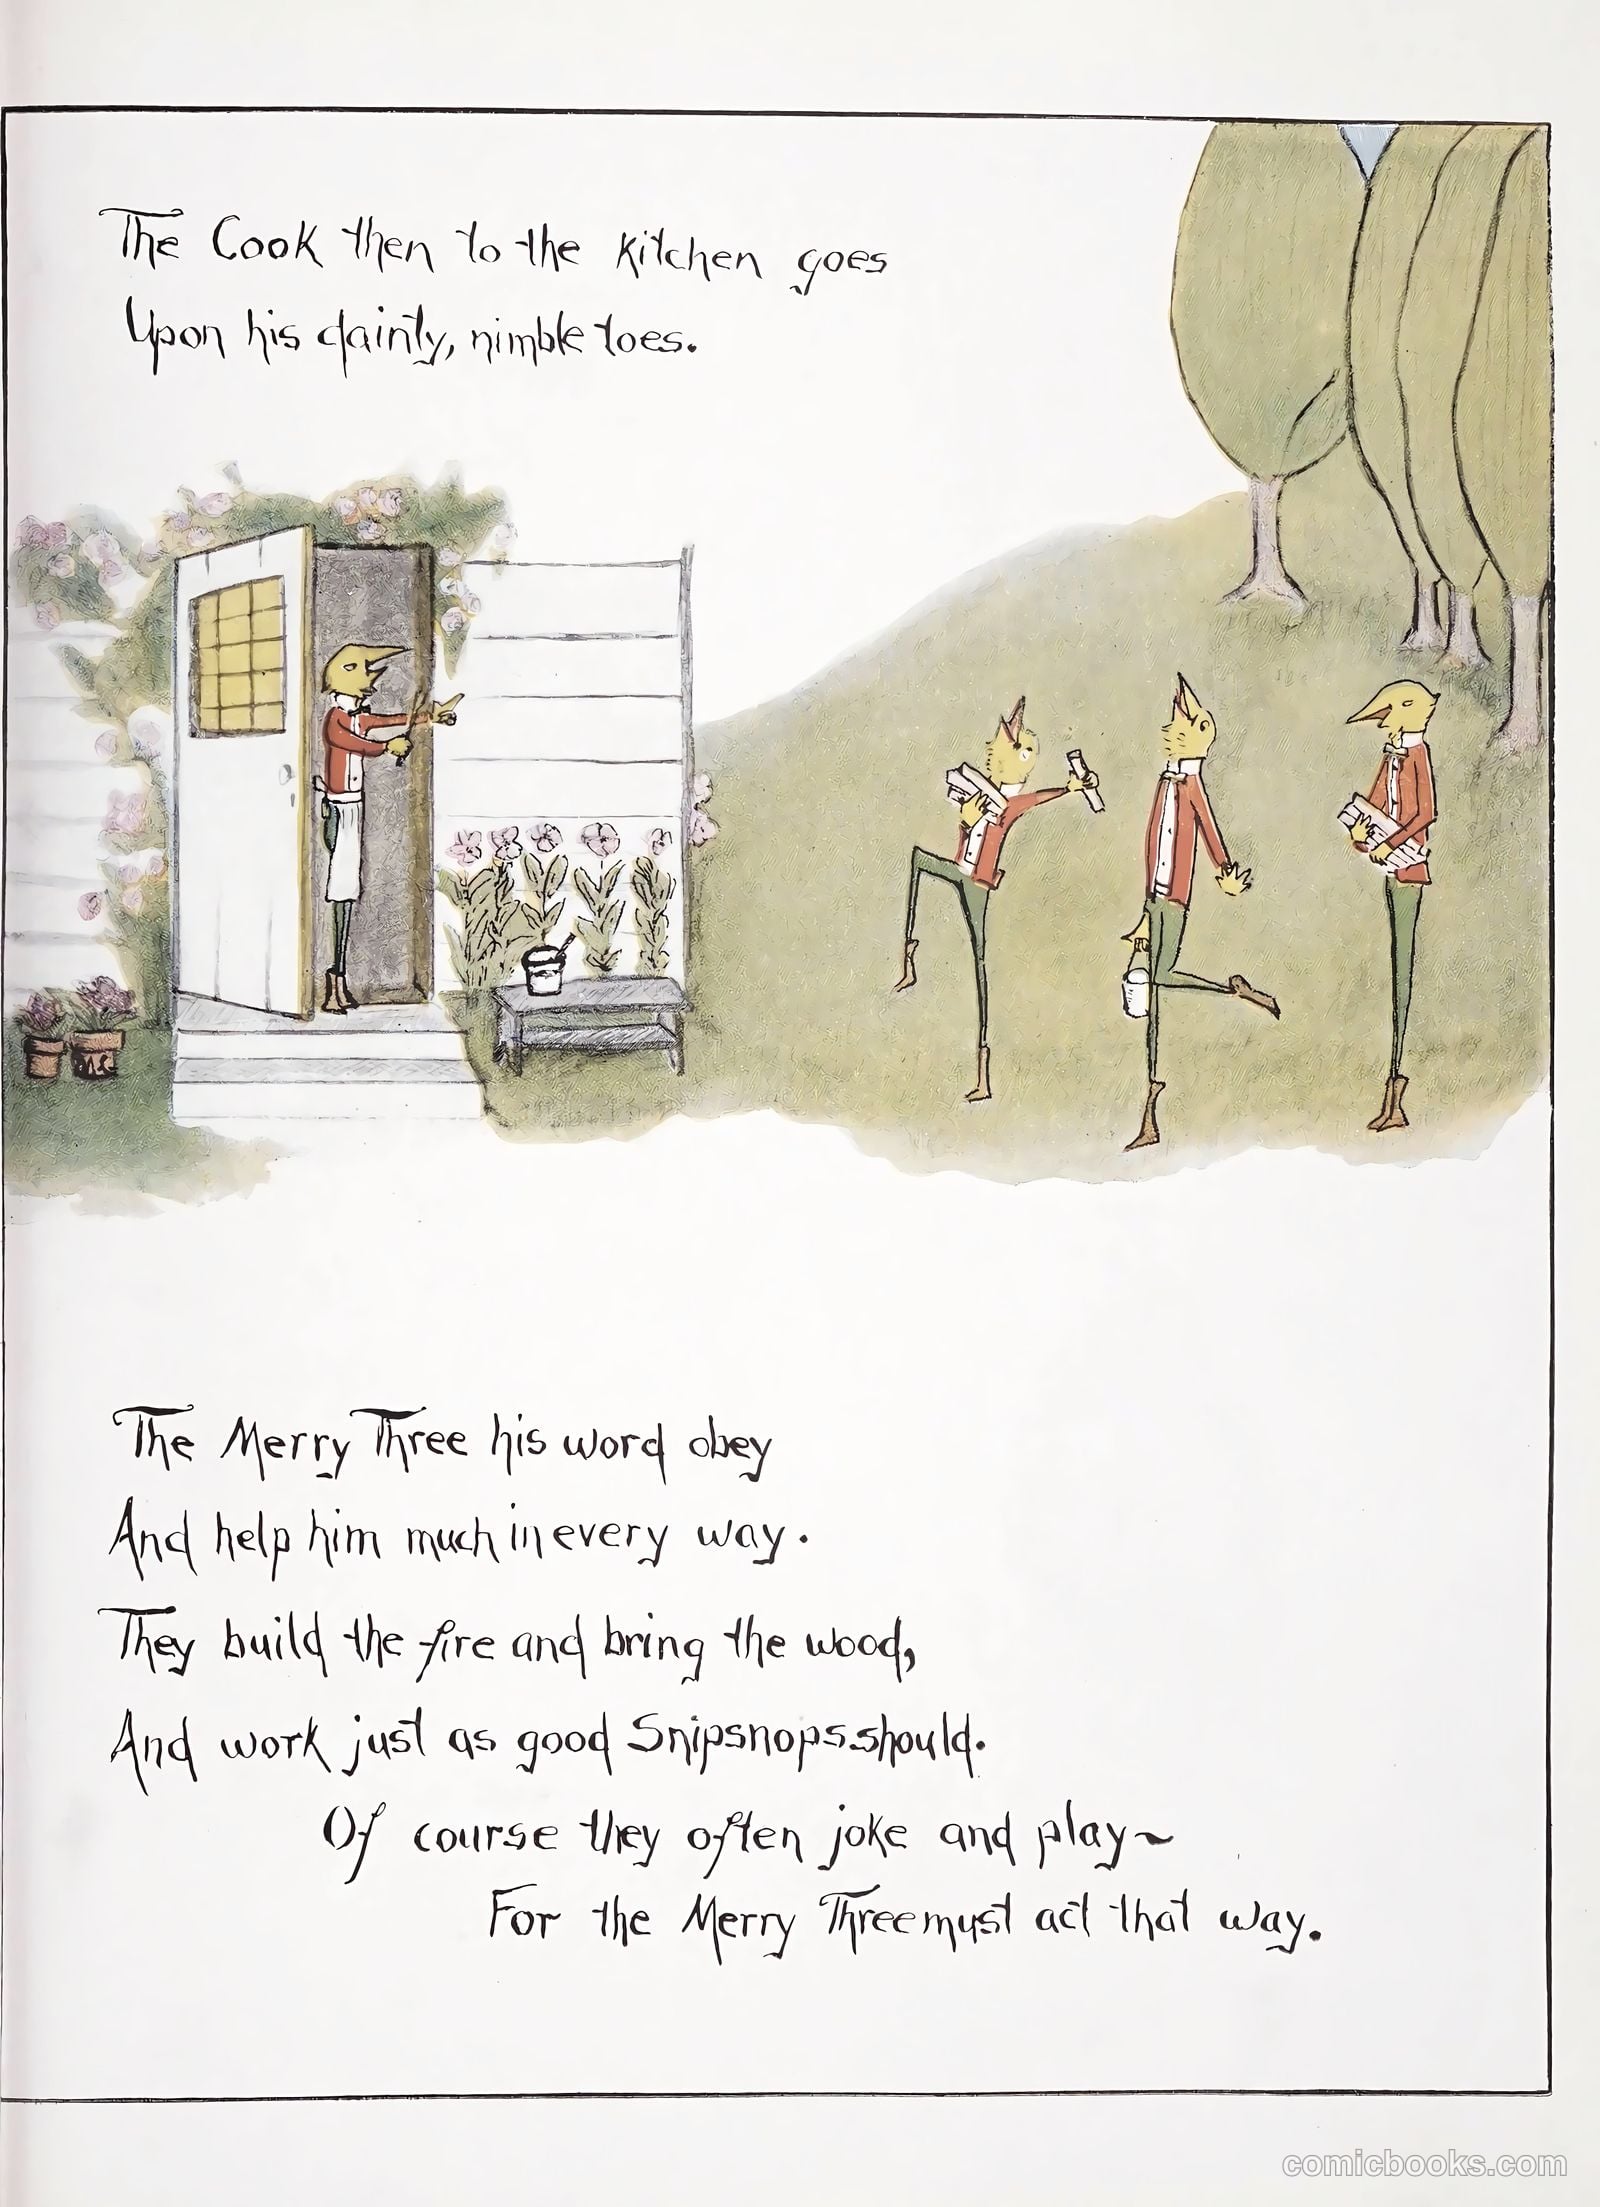 The Cook then to the kitchen goes
Upon his dainty, nimble toes.
The Merry Three his word obey
And help him much in every way.
They build the fire and bring the wood,
And work just as good Snipsnops should.
Of course they often joke and play~
For the Merry Three must act that way.
comicbooks.com